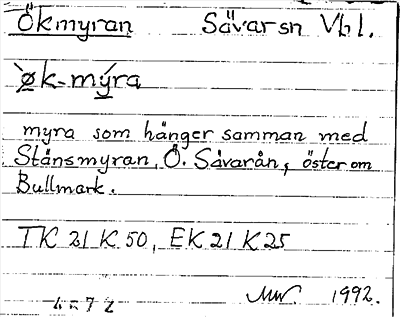 Ökmyran Sävarsn Vbl.
`øk-mýra
myra som hänger samman med
Stånsmyran, Ö. Sävarån, öster om
Bullmark.
TK 21 K 50, EK 21 K 25
MW. 1992.